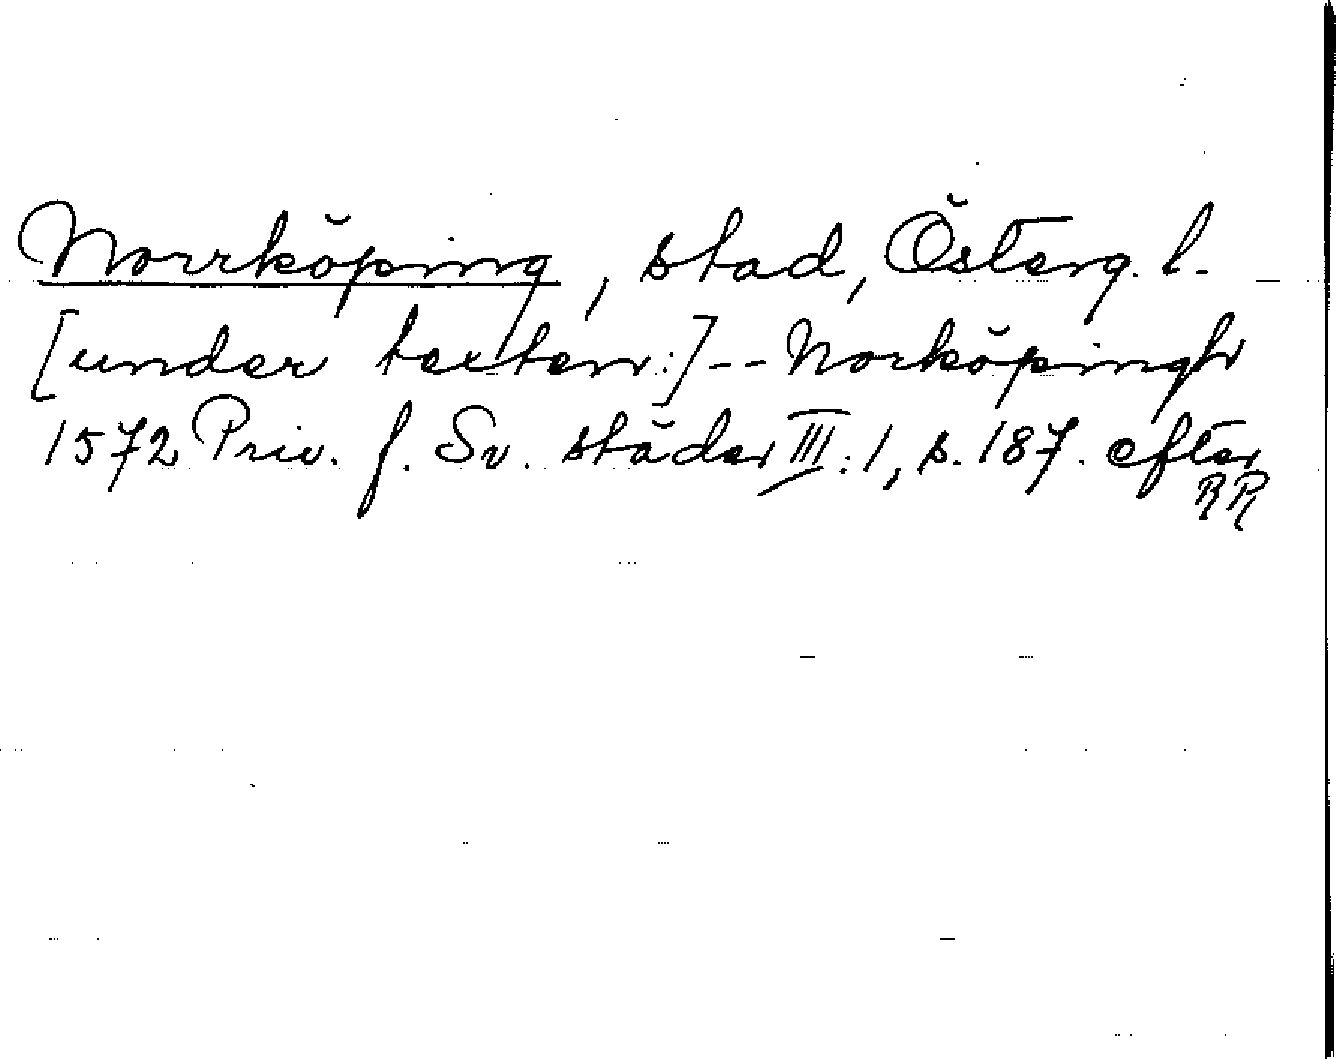 Norrköping, stad, Österg. l.
[under texten:] -- Norköpingh
1572 Priv. f. Sv. städer III:1, s. 187. efter
RR